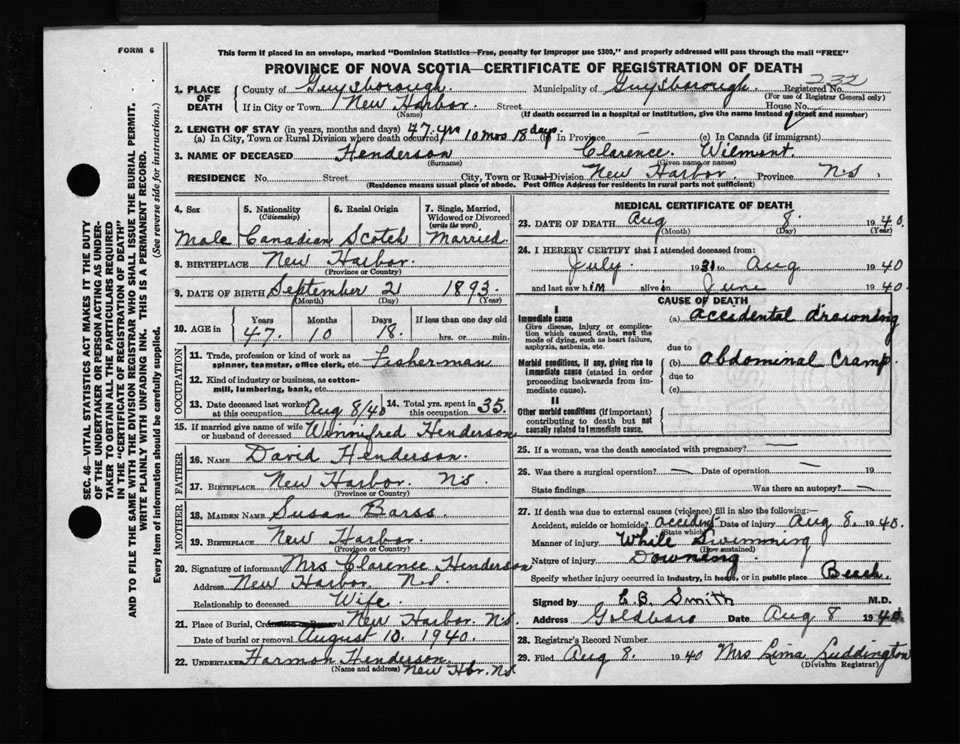 FORM 6
This form if placed in an envelope, marked "Dominion Statistics—Free, penalty for improper use $300," and properly addressed will pass through the mail "FREE"
PROVINCE OF NOVA SCOTIA—CERTIFICATE OF REGISTRATION OF DEATH
232
1. PLACE OF DEATH
County of Guysborough Municipality of Guysborough Registered No.
(For use of Registrar General only)
If in City or Town New Harbor. Street House No.
(Name) (If death occurred in a hospital or institution, give the name instead of street and number)
2. LENGTH OF STAY (in years, months and days)
(a) In City, Town or Rural Division where death occurred 47 yrs 10 Mos 18 days (b) In Province — (c) In Canada (if immigrant)
3. NAME OF DECEASED Henderson Clarence Wilmont.
(Surname) (Given name or names)
RESIDENCE No. Street City, Town or Rural Division New Harbor. Province N.S.
(Residence means usual place of abode. Post Office Address for residents in rural parts not sufficient)
4. Sex Male
5. Nationality (Citizenship) Canadian
6. Racial Origin Scotch
7. Single, Married, Widowed or Divorced (write the word) Married.
8. BIRTHPLACE New Harbor.
(Province or Country)
9. DATE OF BIRTH September 21 1893
(Month) (Day) (Year)
10. AGE in Years Months Days If less than one day old
47. 10 18. hrs. or min.
OCCUPATION
11. Trade, profession or kind of work as spinner, teamster, office clerk, etc. Fisherman
12. Kind of industry or business, as cotton-mill, lumbering, bank, etc.
13. Date deceased last worked at this occupation Aug 8/40 14. Total yrs. spent in this occupation 35.
15. If married give name of wife or husband of deceased Winnifred Henderson
FATHER
16. Name David Henderson.
17. Birthplace New Harbor. N.S.
(Province or Country)
MOTHER
18. Maiden Name Susan Barss.
19. Birthplace New Harbor.
(Province or Country)
20. Signature of informant Mrs Clarence Henderson
Address New Harbor. N.S.
Relationship to deceased Wife.
21. Place of Burial, New Harbor. N.S.
Date of burial or removal August 10, 1940.
22. UNDERTAKER Harmon Henderson.
(Name and address) New Hbr. NS.
MEDICAL CERTIFICATE OF DEATH
23. DATE OF DEATH Aug 8. 1940.
(Month) (Day) (Year)
24. I HEREBY CERTIFY that I attended deceased from:
July 1931 to Aug 1940
and last saw him alive in June 1940.
CAUSE OF DEATH
I
Immediate cause
Give disease, injury or complication which caused death, not the mode of dying, such as heart failure, asphyxia, asthenia, etc.
(a) accidental drowning
due to
Morbid conditions, if any, giving rise to immediate cause (stated in order proceeding backwards from immediate cause).
(b) abdominal Cramp.
due to
(c)
II
Other morbid conditions (if important) contributing to death but not causally related to immediate cause.
25. If a woman, was the death associated with pregnancy? —
26. Was there a surgical operation? — Date of operation — 19
State findings Was there an autopsy? —
27. If death was due to external causes (violence) fill in also the following:
Accident, suicide or homicide? accident Date of injury Aug 8. 1940.
(State which)
Manner of injury While Swimming
(How sustained)
Nature of injury Downing.
Specify whether injury occurred in industry, in home, or in public place Beach.
Signed by E. B. Smith M.D.
Address Goldboro Date Aug 8 1940.
28. Registrar's Record Number
29. Filed Aug 8. 1940 Mrs Lima Luddington
(Division Registrar)
SEC. 46—VITAL STATISTICS ACT MAKES IT THE DUTY
OF THE UNDERTAKER OR PERSON ACTING AS UNDER-
TAKER TO OBTAIN ALL THE PARTICULARS REQUIRED
IN THE "CERTIFICATE OF REGISTRATION OF DEATH"
AND TO FILE THE SAME WITH THE DIVISION REGISTRAR WHO SHALL ISSUE THE BURIAL PERMIT.
WRITE PLAINLY WITH UNFADING INK. THIS IS A PERMANENT RECORD.
Every item of information should be carefully supplied. (See reverse side for instructions.)